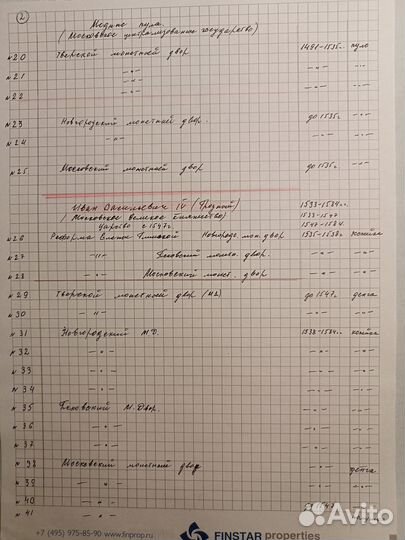 2
Медные пула
(Московское централизованное государство)
N20 Тверской монетный двор 1491-1535г. пуло
N21 -"- -"- -"-
N22 -"- -"- -"-
N23 Новгородский монетный двор. до 1535г -"-
N24 -"- -"- -"-
N25 Московский монетный двор до 1535г -"-
Иван Васильевич IV (Грозный) 1533-1584гг.
(Московское Великое Княжество) 1533-1547
Царство с 1547г. 1547-1584.
N26 Реформа Елены Глинской Новгород. мон. двор 1535-1538г. копейка
N27 -"- Псковский монетн. двор. -"- -"-
N28 -"- Московский монет. двор -"- -"-
N29 Тверской монетный двор до 1547г денга
N30 -"- -"- -"-
N31 Новгородский М.Д. 1538-1584г. копейка
N32 -"- -"- -"-
N33 -"- -"- -"-
N34 -"- -"- -"-
N35 Псковский М. Двор. -"- -"-
N36 -"- -"- -"-
N37 -"- -"- -"-
Московский монетный двор -"- денга
N39 -"- -"- -"-
N40 -"-
N41 -"-
+7 (495) 975-85-90 www.finprop.ru
FINSTAR properties
Avito